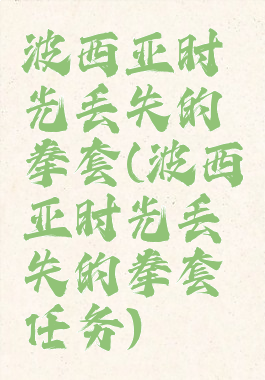 波西亚时
光丢失的
拳套(波西
亚时光丢
失的拳套
任务)